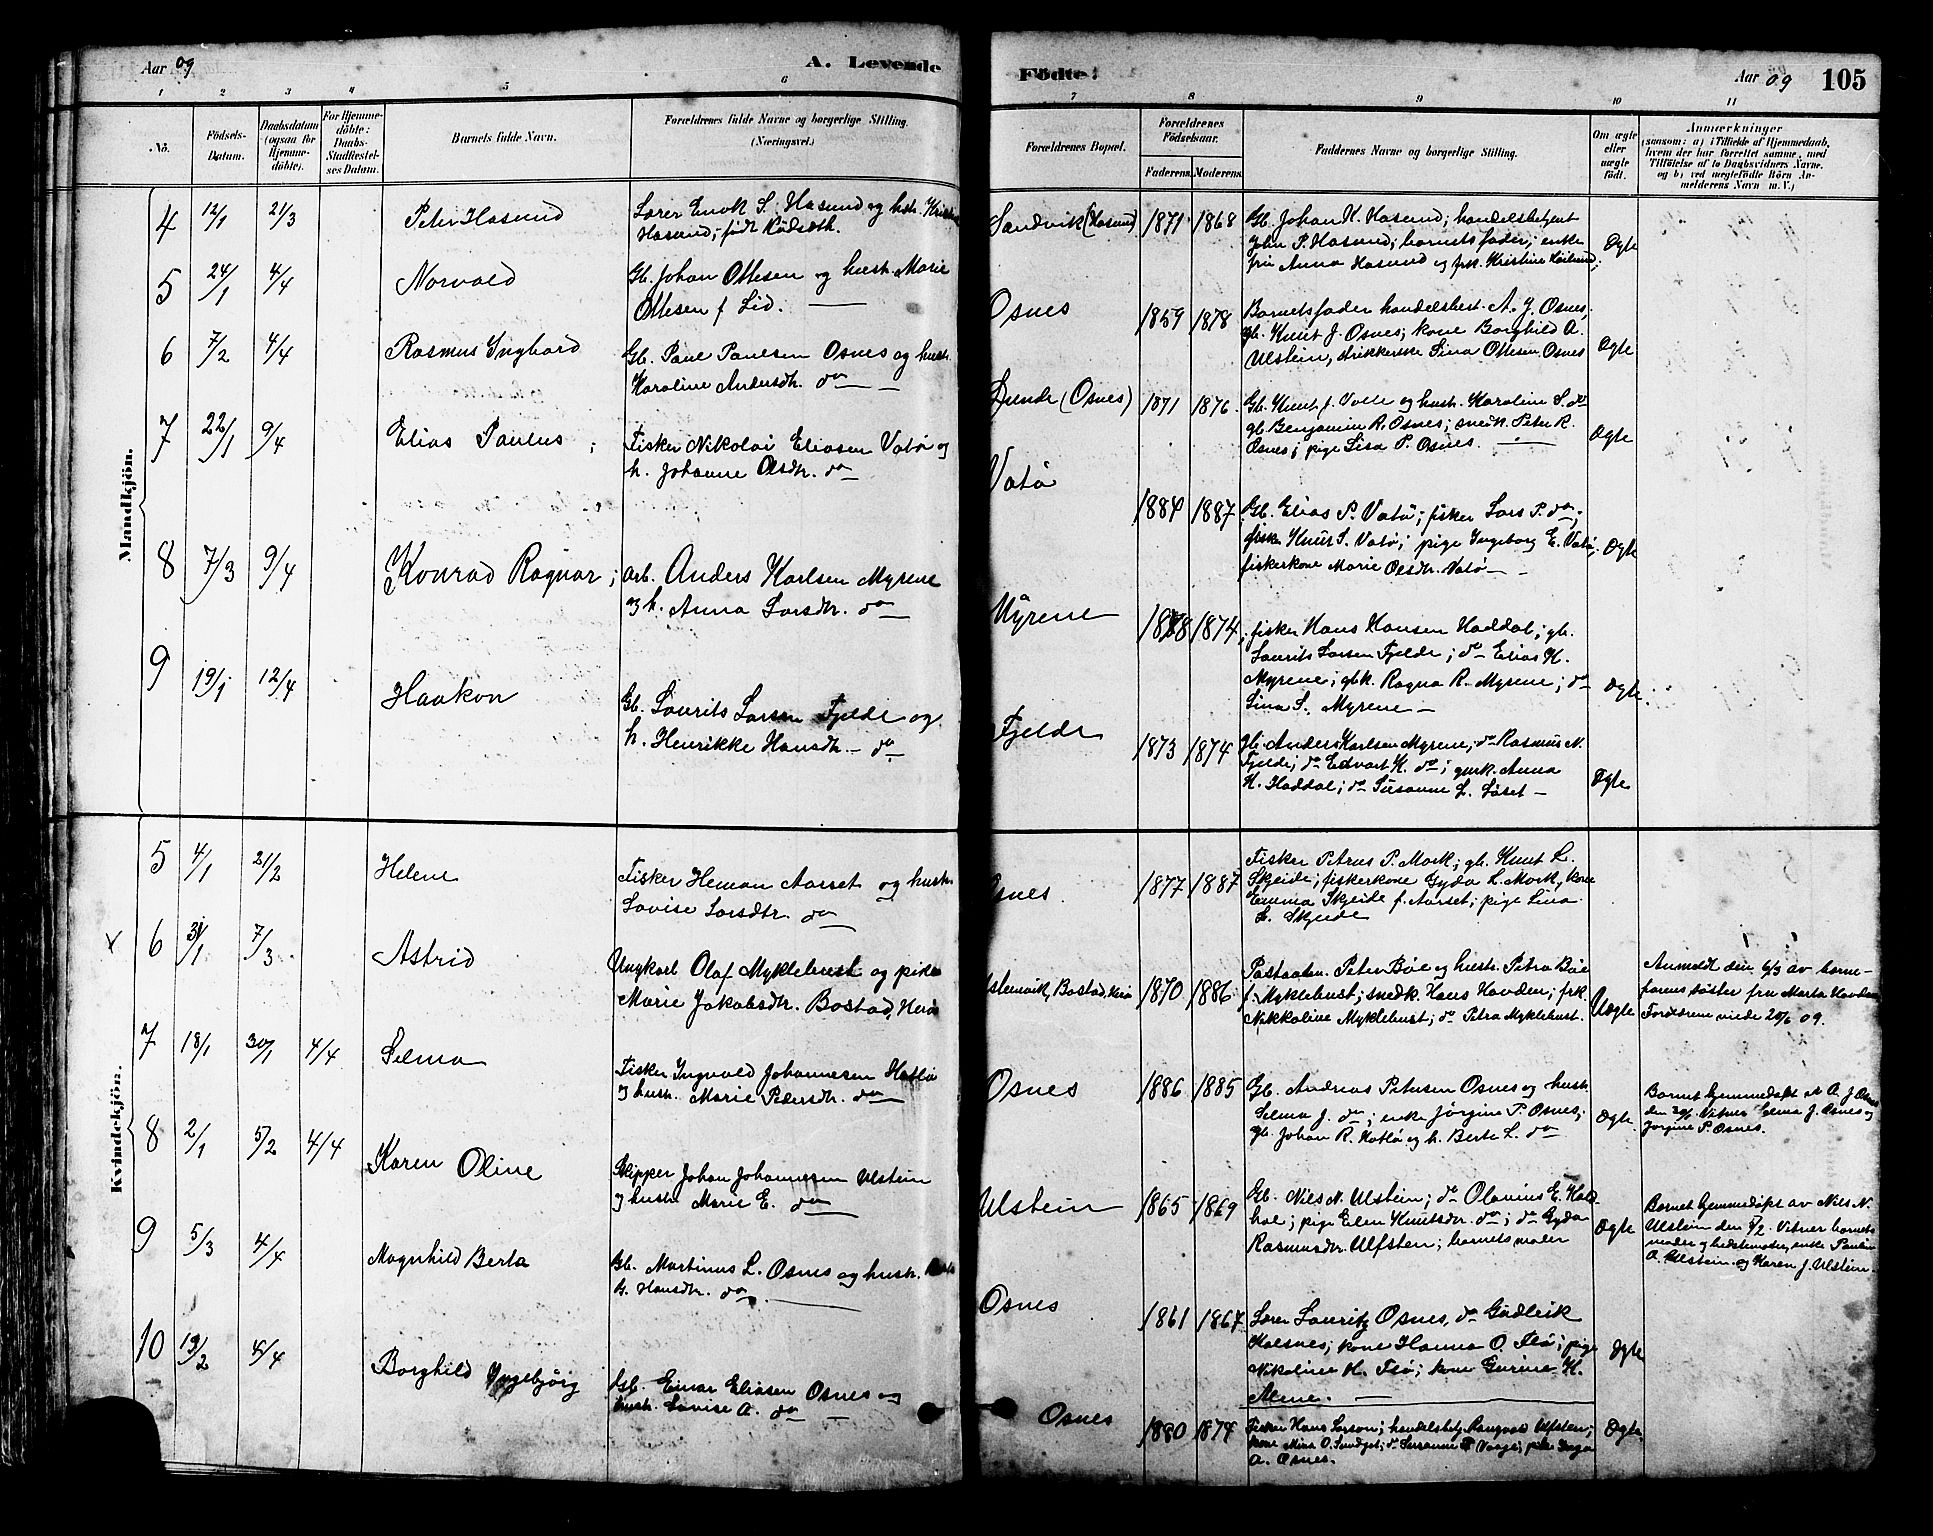 Aar 09
A. Levende
Födte:
Aar 09
105
1 2 3 4 5 6 7 8 9 10 11
No.
Födsels-Datum.
Daabsdatum (ogsaa for Hjemmedöbte).
For Hjemmedöbte: Daabs-Stadfæstelses Datum.
Barnets fulde Navn.
Forældrenes fulde Navne og borgerlige Stilling. (Næringsvei.)
Forældrenes Bopæl.
Forældrenes Födselsaar.
Faderens. Moderens.
Faddernes Navne og borgerlige Stilling.
Om ægte eller uægte födt.
Anmærkninger
(saasom: a) i Tilfælde af Hjemmedaab,
hvem der har forrettet samme, med
Tilföielse af to Daabsvidners Navne.
og b) ved uægtefödte Börn Anmelderens Navn m. V.)
Mandkjön.
4 12/1 21/3 Peter Hasund
Lærer Enok S. Hasund og hust.
Hasund, født Rødsæth.
Sandvik (Hasund) 1871 1868
Gb. Johan K. Hasund; handelsbetjent
John P. Hasund; barnets fader; enke
fru Anna Hasund og frk. Kristine
Ægte
5 24/1 4/4 Norvald
Gb. Johan Ottesen og hust. Marie
Ottesen f. Lid.
Osnes 1859 1878
Barnets fader handelsbest. A. J. Osnes,
gb. Knut J. Osnes; kone Borghild A.
Ulstein, strikkerske Lina Ottesen Osnes
Ægte
6 7/2 4/4 Rasmus Ingvard
Gb. Paul Paulsen Osnes og hust.
Karoline Andersdtr. do
Lunde (Osnes) 1871 1876
Gb. Knut J. Volle og hust. Karoline S. do
gb. Benjamin R. Osnes; snedk. Peter R.
Osnes; pige Lisa P. Osnes.
Ægte
7 22/1 9/4 Elias Paulus;
Fisker Nikolai Eliasen Vatø og
h. Johanne Olsdtr. do
Vatø 1884 1887
Gb. Elias P. Vatø; fisker Lars P. do;
fisker Knut S. Vatø; pige Ingeborg E. Vatø;
fiskerkone Marie Olsdtr. Vatø
Ægte
8 7/3 9/4 Konrad Ragnar;
arb. Anders Karlsen Myrene
og h. Anna Larsdtr. do
Myrene 1874
fisker Hans Hansen Haddal; gb.
Laurits Larsen Fjelde; do Elias K.
Myrene; gbk. Ragna R. Myrene; do
Lina S. Myrene
Ægte
9 19/1 12/4 Haakon
Gb. Laurits Larsen Fjelde og
h. Henrikke Hansdtr. do
Fjelde 1873 1874
Gb. Anders Karlsen Myrene; do Rasmus N.
Fjelde; do Edvart K. do; gmk. Anna
H. Haddal; do Susanne L. Løset
Ægte
Kvindekjön.
5 4/1 21/2 Helene
Fisker Heman Aarset og hust.
Lovise Larsdtr. do
Osnes 1877 1887
Fisker Petrus P. Mork; gb. Knut L.
Skjeide; fiskerkone Gyda L. Mork, kone
Emma Skjeide f. Aarset; pige Lina
L. Skjeide
6 31/1 7/3 Astrid
Ungkarl Olaf Myklebust og pike
Marie Jakobsdtr. Bostad, Herø
Ulsteinvik, Bostad, Herø 1870 1886
Postaabn. Peter Bøe og hustr. Petra Bøe
f. Myklebust; snedk. Hans Hovden; frk.
Nikkoline Myklebust; do Petra Myklebust.
Uægte
Anmeldt den 6/3 av barnefarens søster fru Marta Hovden
Forældrene viede 20/6 09.
7 18/1 30/1 4/4 Selma
Fisker Ingvald Johannesen Hatlø
og hustr. Marie Pedersdtr. do
Osnes 1886 1885
Gb. Andreas Petersen Osnes og hustr.
Selma J. do; enke Jørgine P. Osnes;
gb. Johan R. Hatlø og h. Berte L. do
Ægte
Barnet hjemmedøpt av A. J. Osnes
den Vitner Selma J. Osnes og
Jørgine P. Osnes.
8 2/1 5/2 4/4 Karen Oline
Skipper Johan Johannesen Ulstein
og hustr. Marie E. do
Ulstein 1865 1869
Gb. Nils N. Ulstein; do Olavius E.
pige Elen Knutsdtr. do; do Gyda
Rasmusdtr. Ulfsten; barnets moder
Ægte
Barnet hjemmedøpt av Nils N.
Ulstein den 5/2. Vitner barnets
moder og bedstemoder, enke Pauline
A. Ulstein og Karen J. Ulstein.
9 5/3 4/4 Magnhild Berta
Gb. Martinus L. Osnes og hustr.
Hansdtr. do
Osnes 1861 1867
Lærer Lauritz Osnes, do Gudleik
kone Hanna O. Flø; pige
Nikoline H. Flø; kone Gurine H.
Alme.
Ægte
10 13/2 4/4 Borghild Ingebjørg
Gb. Einar Eliasen Osnes og
hust. Lovise A. do
Osnes 1880 1874
Fisker Hans Larsen; handelsbetj. Ulfsten;
kone Mina O. do Susanne P. pike Inga
A. Osnes.
Ægte